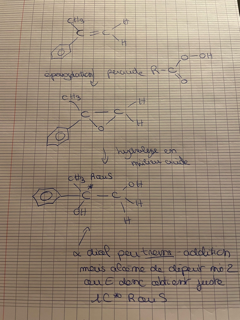 CH3 H
C = C
H
époxydation peracide R-C O-OH
O
CH3 H
C - C
O H
hydrolyse en
milieu acide
CH3 R ou S OH
C* - C - H
OH H
α diol par trans-addition
mais alcène de départ
ou E donc obtient juste
1C* R ou S